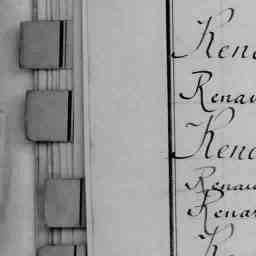 Rena
Renau
Rena
Renau
Renar
Re